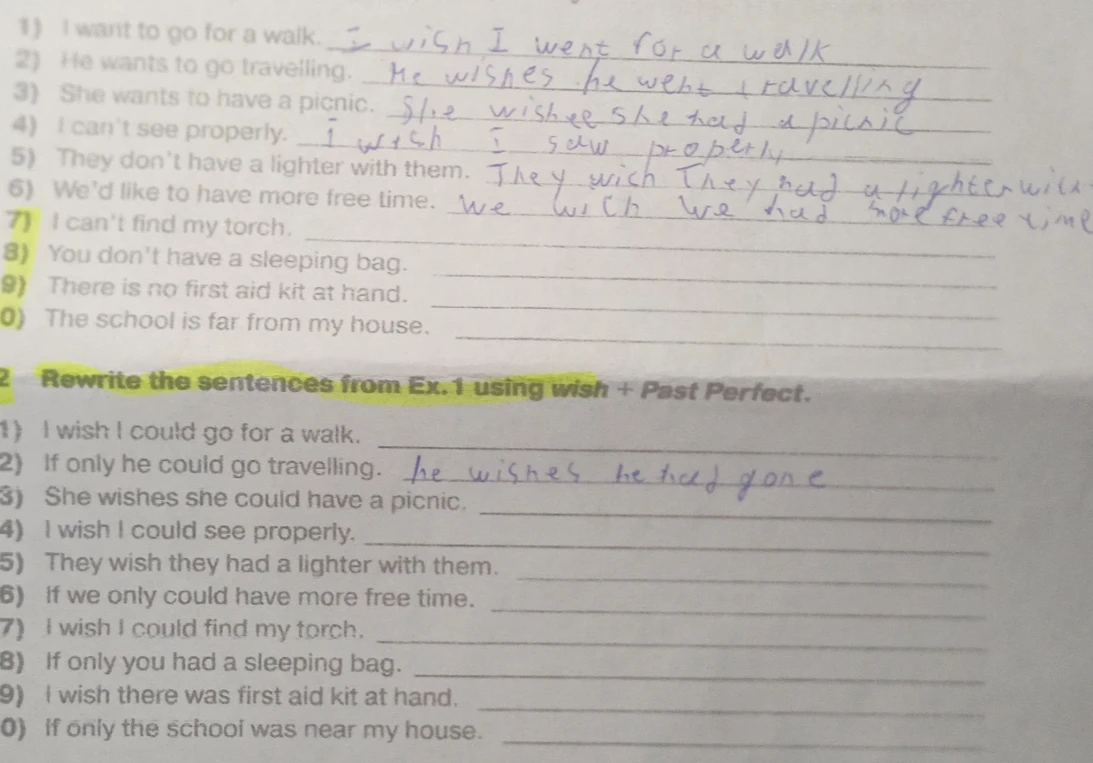 1) I want to go for a walk. I wish I went for a walk
2) He wants to go travelling. He wishes he went travelling
3) She wants to have a picnic. She wishes she had a picnic
4) I can't see properly. I wish I saw properly
5) They don't have a lighter with them. They wich They had a lighter with
6) We'd like to have more free time. We wich we had more free time
7) I can't find my torch.
8) You don't have a sleeping bag.
9) There is no first aid kit at hand.
0) The school is far from my house.
2 Rewrite the sentences from Ex. 1 using wish + Past Perfect.
1) I wish I could go for a walk.
2) If only he could go travelling. he wishes he had gone
3) She wishes she could have a picnic.
4) I wish I could see properly.
5) They wish they had a lighter with them.
6) If we only could have more free time.
7) I wish I could find my torch.
8) If only you had a sleeping bag.
9) I wish there was first aid kit at hand.
0) If only the school was near my house.